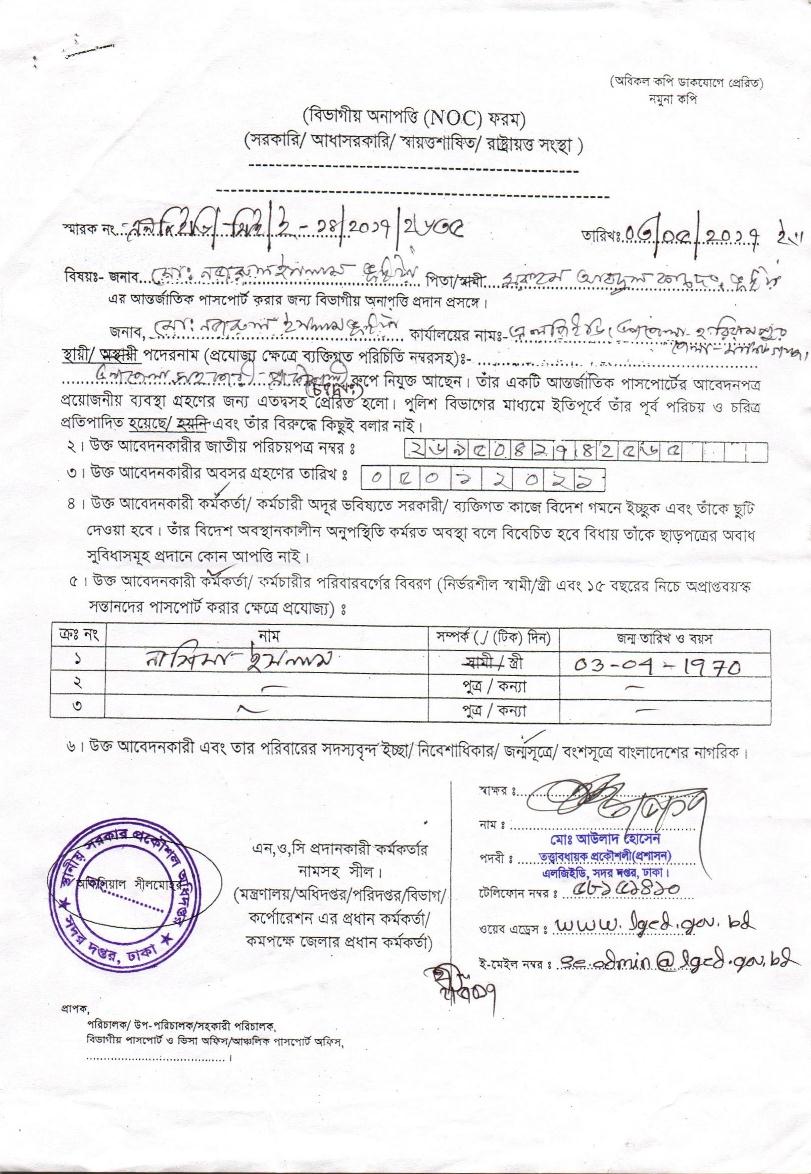 (অবিকল কপি ডাকযোগে প্রেরিত)
নমুনা কপি
(বিভাগীয় অনাপত্তি (NOC) ফরম)
(সরকারি/ আধাসরকারি/ স্বায়ত্তশাষিত/ রাষ্ট্রায়ত্ত সংস্থা )
স্মারক নং ২৪/২০১৭/২৮৩৫ তারিখঃ ০৩/০৫/২০১৭ ইং
বিষয়ঃ- জনাব, মোঃ নজরুল ইসলাম পিতা/স্বামী মরহুম আবদুল
এর আন্তর্জাতিক পাসপোর্ট করার জন্য বিভাগীয় অনাপত্তি প্রদান প্রসঙ্গে ।
জনাব, মোঃ নজরুল ইসলাম কার্যালয়ের নামঃ- এলজিইডি, উপজেলা- হরিরামপুর
জেলা- মানিকগঞ্জ।
স্থায়ী/ অস্থায়ী পদেরনাম (প্রযোজ্য ক্ষেত্রে ব্যক্তিগত পরিচিতি নম্বরসহ)ঃ-
উপজেলা সহকারী প্রকৌশলী রূপে নিযুক্ত আছেন। তাঁর একটি আন্তর্জাতিক পাসপোর্টের আবেদনপত্র
প্রয়োজনীয় ব্যবস্থা গ্রহণের জন্য এতদ্বসহ প্রেরিত হলো। পুলিশ বিভাগের মাধ্যমে ইতিপূর্বে তাঁর পূর্ব পরিচয় ও চরিত্র
প্রতিপাদিত হয়েছে/ হয়নি এবং তাঁর বিরুদ্ধে কিছুই বলার নাই।
২। উক্ত আবেদনকারীর জাতীয় পরিচয়পত্র নম্বর ঃ
৩। উক্ত আবেদনকারীর অবসর গ্রহণের তারিখ ঃ ০৫০১২০২১
৪। উক্ত আবেদনকারী কর্মকর্তা/ কর্মচারী অদূর ভবিষ্যতে সরকারী/ ব্যক্তিগত কাজে বিদেশ গমনে ইচ্ছুক এবং তাঁকে ছুটি
দেওয়া হবে। তাঁর বিদেশ অবস্থানকালীন অনুপস্থিতি কর্মরত অবস্থা বলে বিবেচিত হবে বিধায় তাঁকে ছাড়পত্রের অবাধ
সুবিধাসমূহ প্রদানে কোন আপত্তি নাই।
৫। উক্ত আবেদনকারী কর্মকর্তা/ কর্মচারীর পরিবারবর্গের বিবরণ (নির্ভরশীল স্বামী/স্ত্রী এবং ১৫ বছরের নিচে অপ্রাপ্তবয়স্ক
সন্তানদের পাসপোর্ট করার ক্ষেত্রে প্রযোজ্য) ঃ
ক্রঃ নং নাম সম্পর্ক (./ (টিক) দিন) জন্ম তারিখ ও বয়স
১ নাসিমা ইসলাম স্বামী / স্ত্রী 03-04-1970
২ – পুত্র / কন্যা –
৩ ~ পুত্র / কন্যা –
৬। উক্ত আবেদনকারী এবং তার পরিবারের সদস্যবৃন্দ ইচ্ছা/ নিবেশাধিকার/ জন্মসূত্রে/ বংশসূত্রে বাংলাদেশের নাগরিক।
স্বাক্ষর ঃ
নাম ঃ
মোঃ আউলাদ হোসেন
পদবী ঃ তত্ত্বাবধায়ক প্রকৌশলী(প্রশাসন)
এলজিইডি, সদর দপ্তর, ঢাকা।
টেলিফোন নম্বর ঃ
ওয়েব এড্রেস ঃ www.lged.gov.bd
ই-মেইল নম্বর ঃ se.admin@lged.gov.bd
এন,ও,সি প্রদানকারী কর্মকর্তার
নামসহ সীল।
(মন্ত্রণালয়/অধিদপ্তর/পরিদপ্তর/বিভাগ/
কর্পোরেশন এর প্রধান কর্মকর্তা/
কমপক্ষে জেলার প্রধান কর্মকর্তা)
স্থানীয় সরকার প্রকৌশল অধিদপ্তর
অফিসিয়াল সীলমোহর
★ সদর দপ্তর, ঢাকা ★
প্রাপক,
পরিচালক/ উপ-পরিচালক/সহকারী পরিচালক,
বিভাগীয় পাসপোর্ট ও ভিসা অফিস/আঞ্চলিক পাসপোর্ট অফিস,